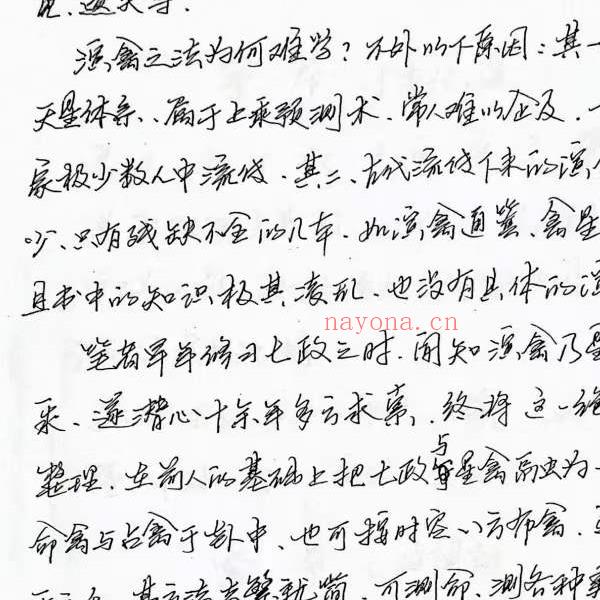 演禽之法为何难学？不外以下原因：其一
天星体系、属于上乘预测术、常人难以企及、
家极少数人中流传．其二、古代流传下来的演
少、只有残缺不全的几本．如演禽通纂、禽星
且书中的知识极其凌乱、也没有具体的演
nayona.cn
笔者早年修习七政之时．闻知演禽乃
来、遂潜心十余年多方求索，终将这一绝
整理．在前人的基础上把七政与星禽融为一
命禽与占禽于卦中、也可按时空八方布禽．
其方法去繁就简、可测命、测各种